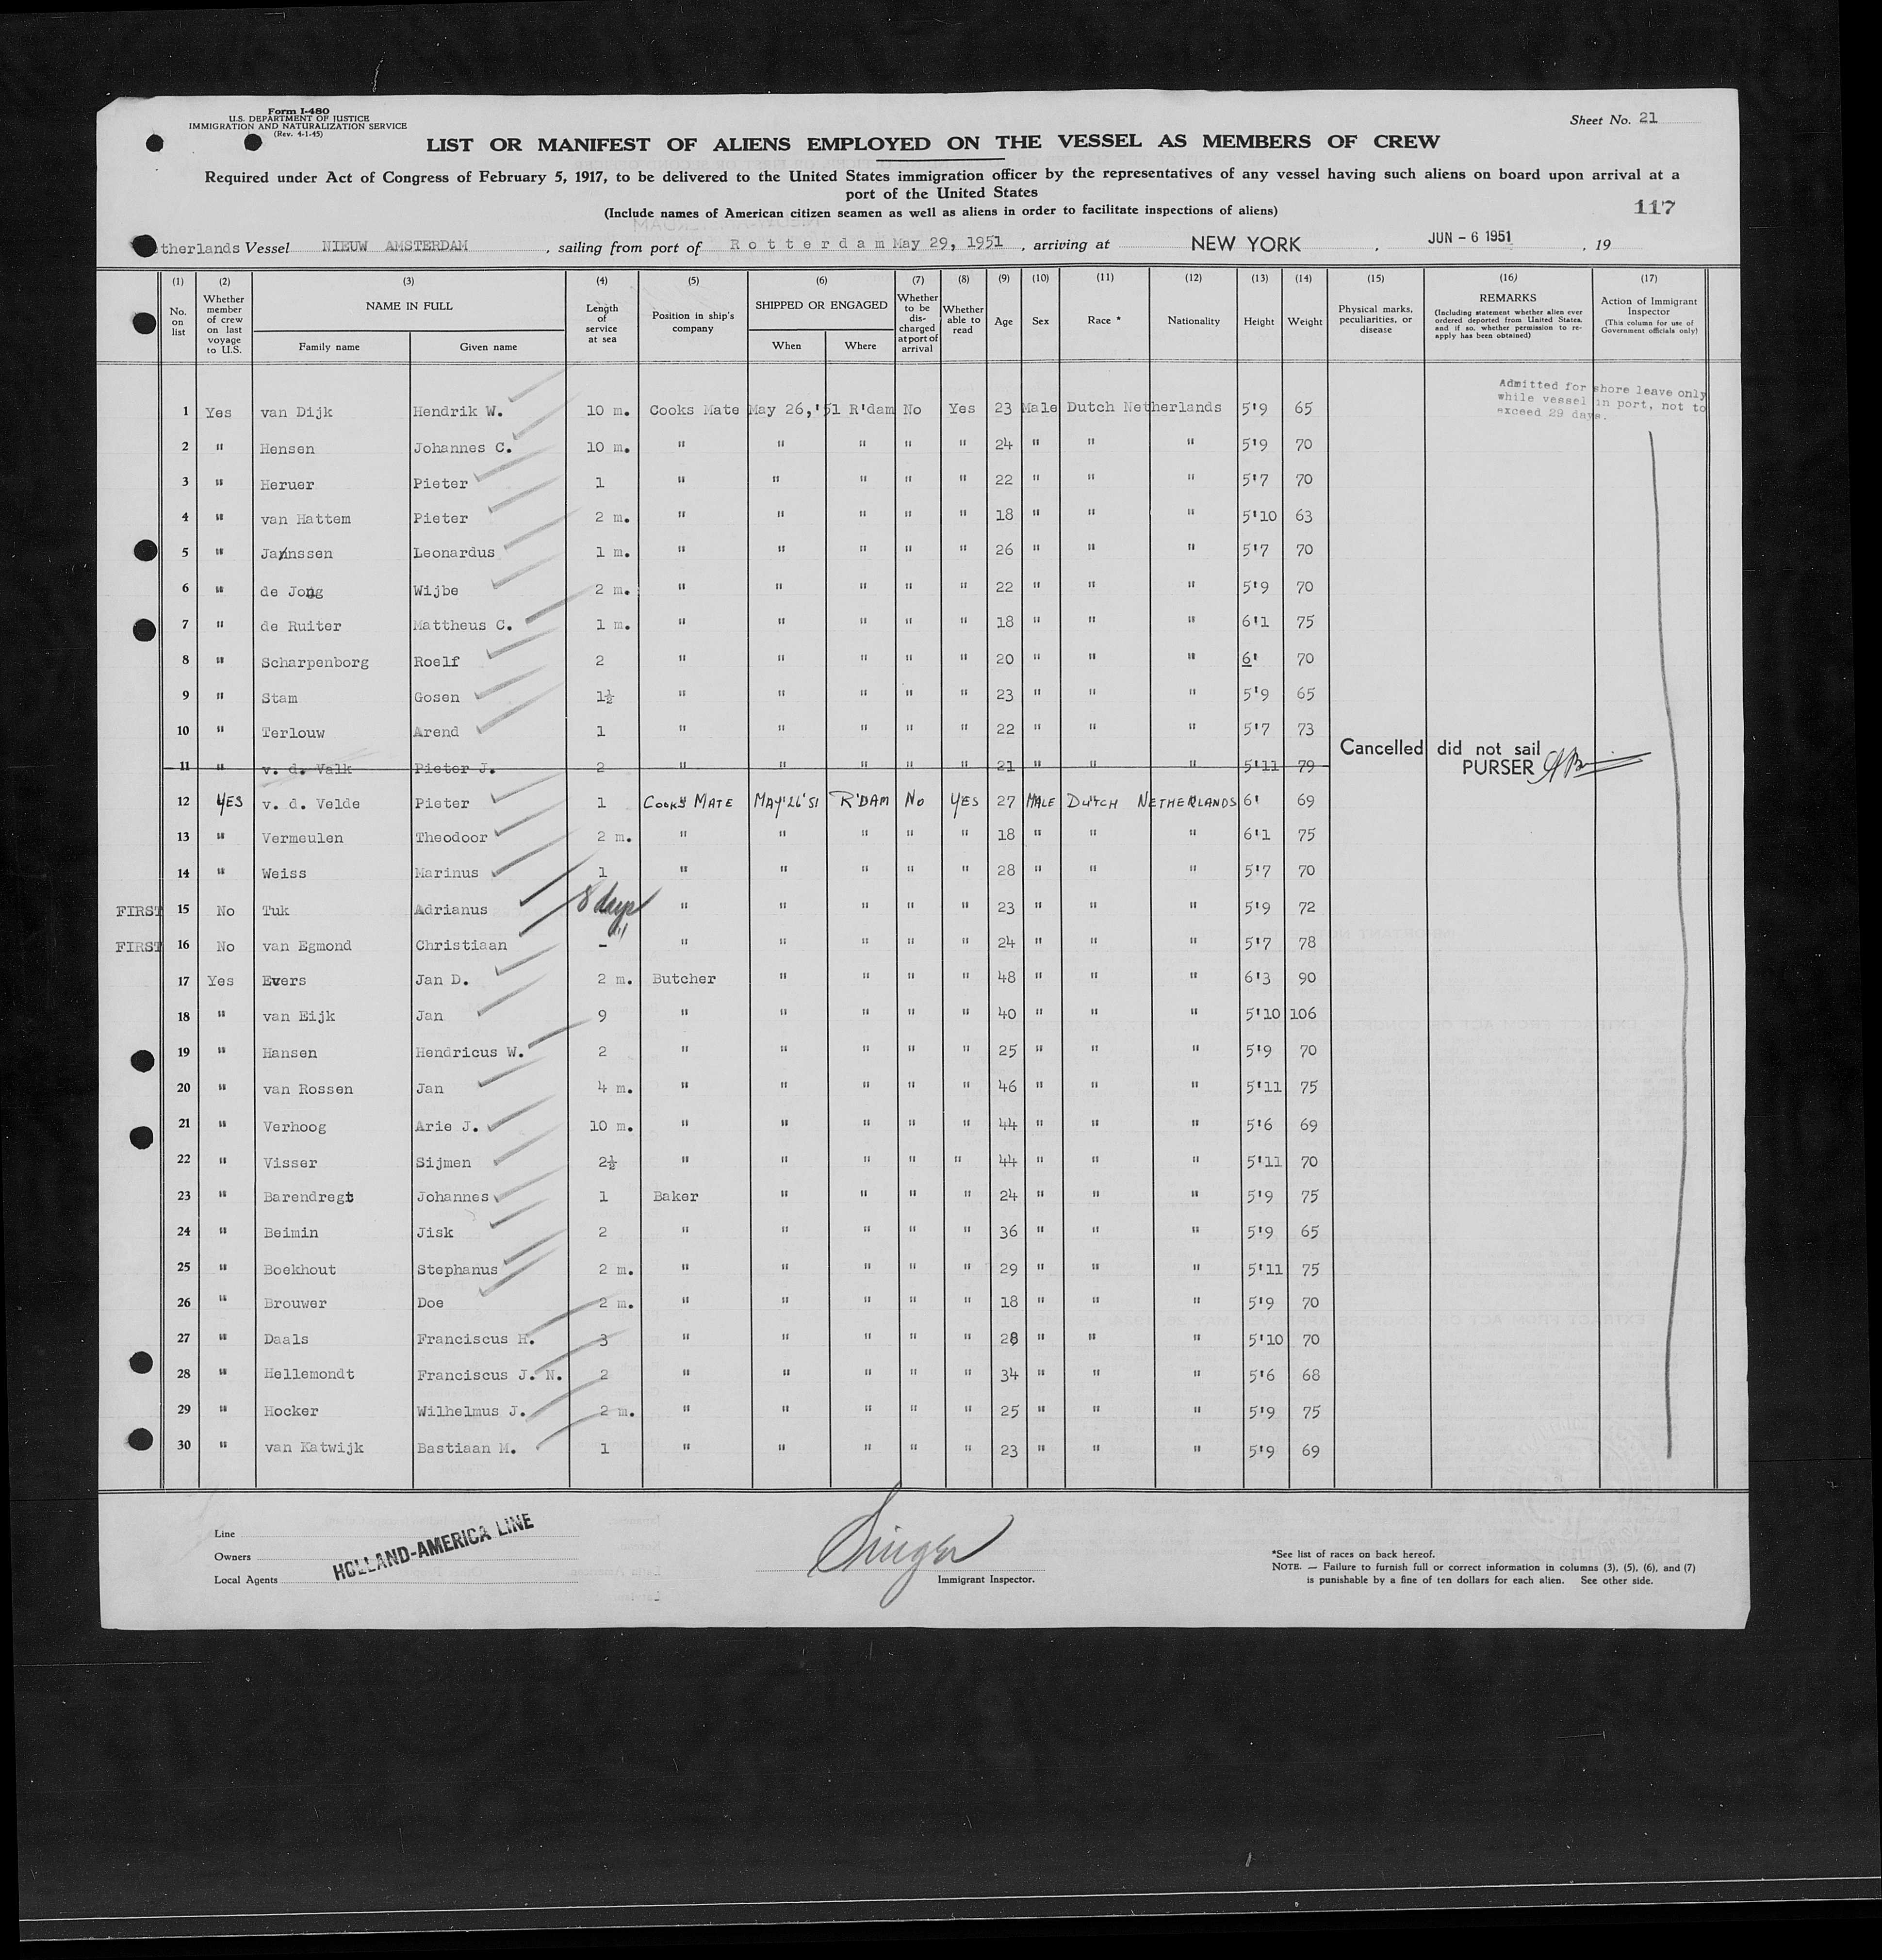 Form I-480
U.S. DEPARTMENT OF JUSTICE
IMMIGRATION AND NATURALIZATION SERVICE
(Rev. 4-1-45)
Sheet No. 21
LIST OR MANIFEST OF ALIENS EMPLOYED ON THE VESSEL AS MEMBERS OF CREW
Required under Act of Congress of February 5, 1917, to be delivered to the United States immigration officer by the representatives of any vessel having such aliens on board upon arrival at a
port of the United States
(Include names of American citizen seamen as well as aliens in order to facilitate inspections of aliens)
117
therlands Vessel NIEUW AMSTERDAM, sailing from port of Rotterdam May 29, 1951, arriving at NEW YORK, JUN - 6 1951, 19
(1) (2) (3) (4) (5) (6) (7) (8) (9) (10) (11) (12) (13) (14) (15) (16) (17)
No. on list
Whether member of crew on last voyage to U.S.
NAME IN FULL
Family name Given name
Length of service at sea
Position in ship's company
SHIPPED OR ENGAGED
When Where
Whether to be discharged at port of arrival
Whether able to read
Age
Sex
Race *
Nationality
Height
Weight
Physical marks, peculiarities, or disease
REMARKS
(Including statement whether alien ever ordered deported from United States, and if so, whether permission to reapply has been obtained)
Action of Immigrant Inspector
(This column for use of Government officials only)
Admitted for shore leave only
while vessel in port, not to
exceed 29 days.
1 Yes van Dijk Hendrik W. 10 m. Cooks Mate May 26,'51 R'dam No Yes 23 Male Dutch Netherlands 5'9 65
2 " Hensen Johannes C. 10 m. " " " " " 24 " " " 5'9 70
3 " Heruer Pieter 1 " " " " " 22 " " " 5'7 70
4 " van Hattem Pieter 2 m. " " " " " 18 " " " 5'10 63
5 " Janssen Leonardus 1 m. " " " " " 26 " " " 5'7 70
6 " de Jong Wijbe 2 m. " " " " " 22 " " " 5'9 70
7 " de Ruiter Mattheus C. 1 m. " " " " " 18 " " " 6'1 75
8 " Scharpenborg Roelf 2 " " " " " 20 " " " 6' 70
9 " Stam Gosen 1½ " " " " " 23 " " " 5'9 65
10 " Terlouw Arend 1 " " " " " 22 " " " 5'7 73
Cancelled did not sail
PURSER
11 " v. d. Valk Pieter J. 2 " " " " " 21 " " " 5'11 79
12 YES v. d. Velde Pieter 1 COOKS MATE MAY'26'51 R'DAM NO YES 27 MALE DUTCH NETHERLANDS 6' 69
13 " Vermeulen Theodoor 2 m. " " " " " 18 " " " 6'1 75
14 " Weiss Marinus 1 " " " " " 28 " " " 5'7 70
FIRST 15 No Tuk Adrianus 8 days " " " " " 23 " " " 5'9 72
FIRST 16 No van Egmond Christiaan - " " " " " " 24 " " " 5'7 78
17 Yes Evers Jan D. 2 m. Butcher " " " " 48 " " " 6'3 90
18 " van Eijk Jan 9 " " " " " 40 " " " 5'10 106
19 " Hansen Hendricus W. 2 " " " " " 25 " " " 5'9 70
20 " van Rossen Jan 4 m. " " " " " 46 " " " 5'11 75
21 " Verhoog Arie J. 10 m. " " " " " 44 " " " 5'6 69
22 " Visser Sijmen 2½ " " " " " 44 " " " 5'11 70
23 " Barendregt Johannes 1 Baker " " " " 24 " " " 5'9 75
24 " Beimin Jisk 2 " " " " " 36 " " " 5'9 65
25 " Boekhout Stephanus 2 m. " " " " " 29 " " " 5'11 75
26 " Brouwer Doe 2 m. " " " " " 18 " " " 5'9 70
27 " Daals Franciscus H. 3 " " " " " 28 " " " 5'10 70
28 " Hellemondt Franciscus J. N. 2 " " " " " 34 " " " 5'6 68
29 " Hocker Wilhelmus J. 2 m. " " " " " 25 " " " 5'9 75
30 " van Katwijk Bastiaan M. 1 " " " " " 23 " " " 5'9 69
Line
Owners
Local Agents
HOLLAND-AMERICA LINE
Singer
Immigrant Inspector.
*See list of races on back hereof.
NOTE. — Failure to furnish full or correct information in columns (3), (5), (6), and (7)
is punishable by a fine of ten dollars for each alien. See other side.